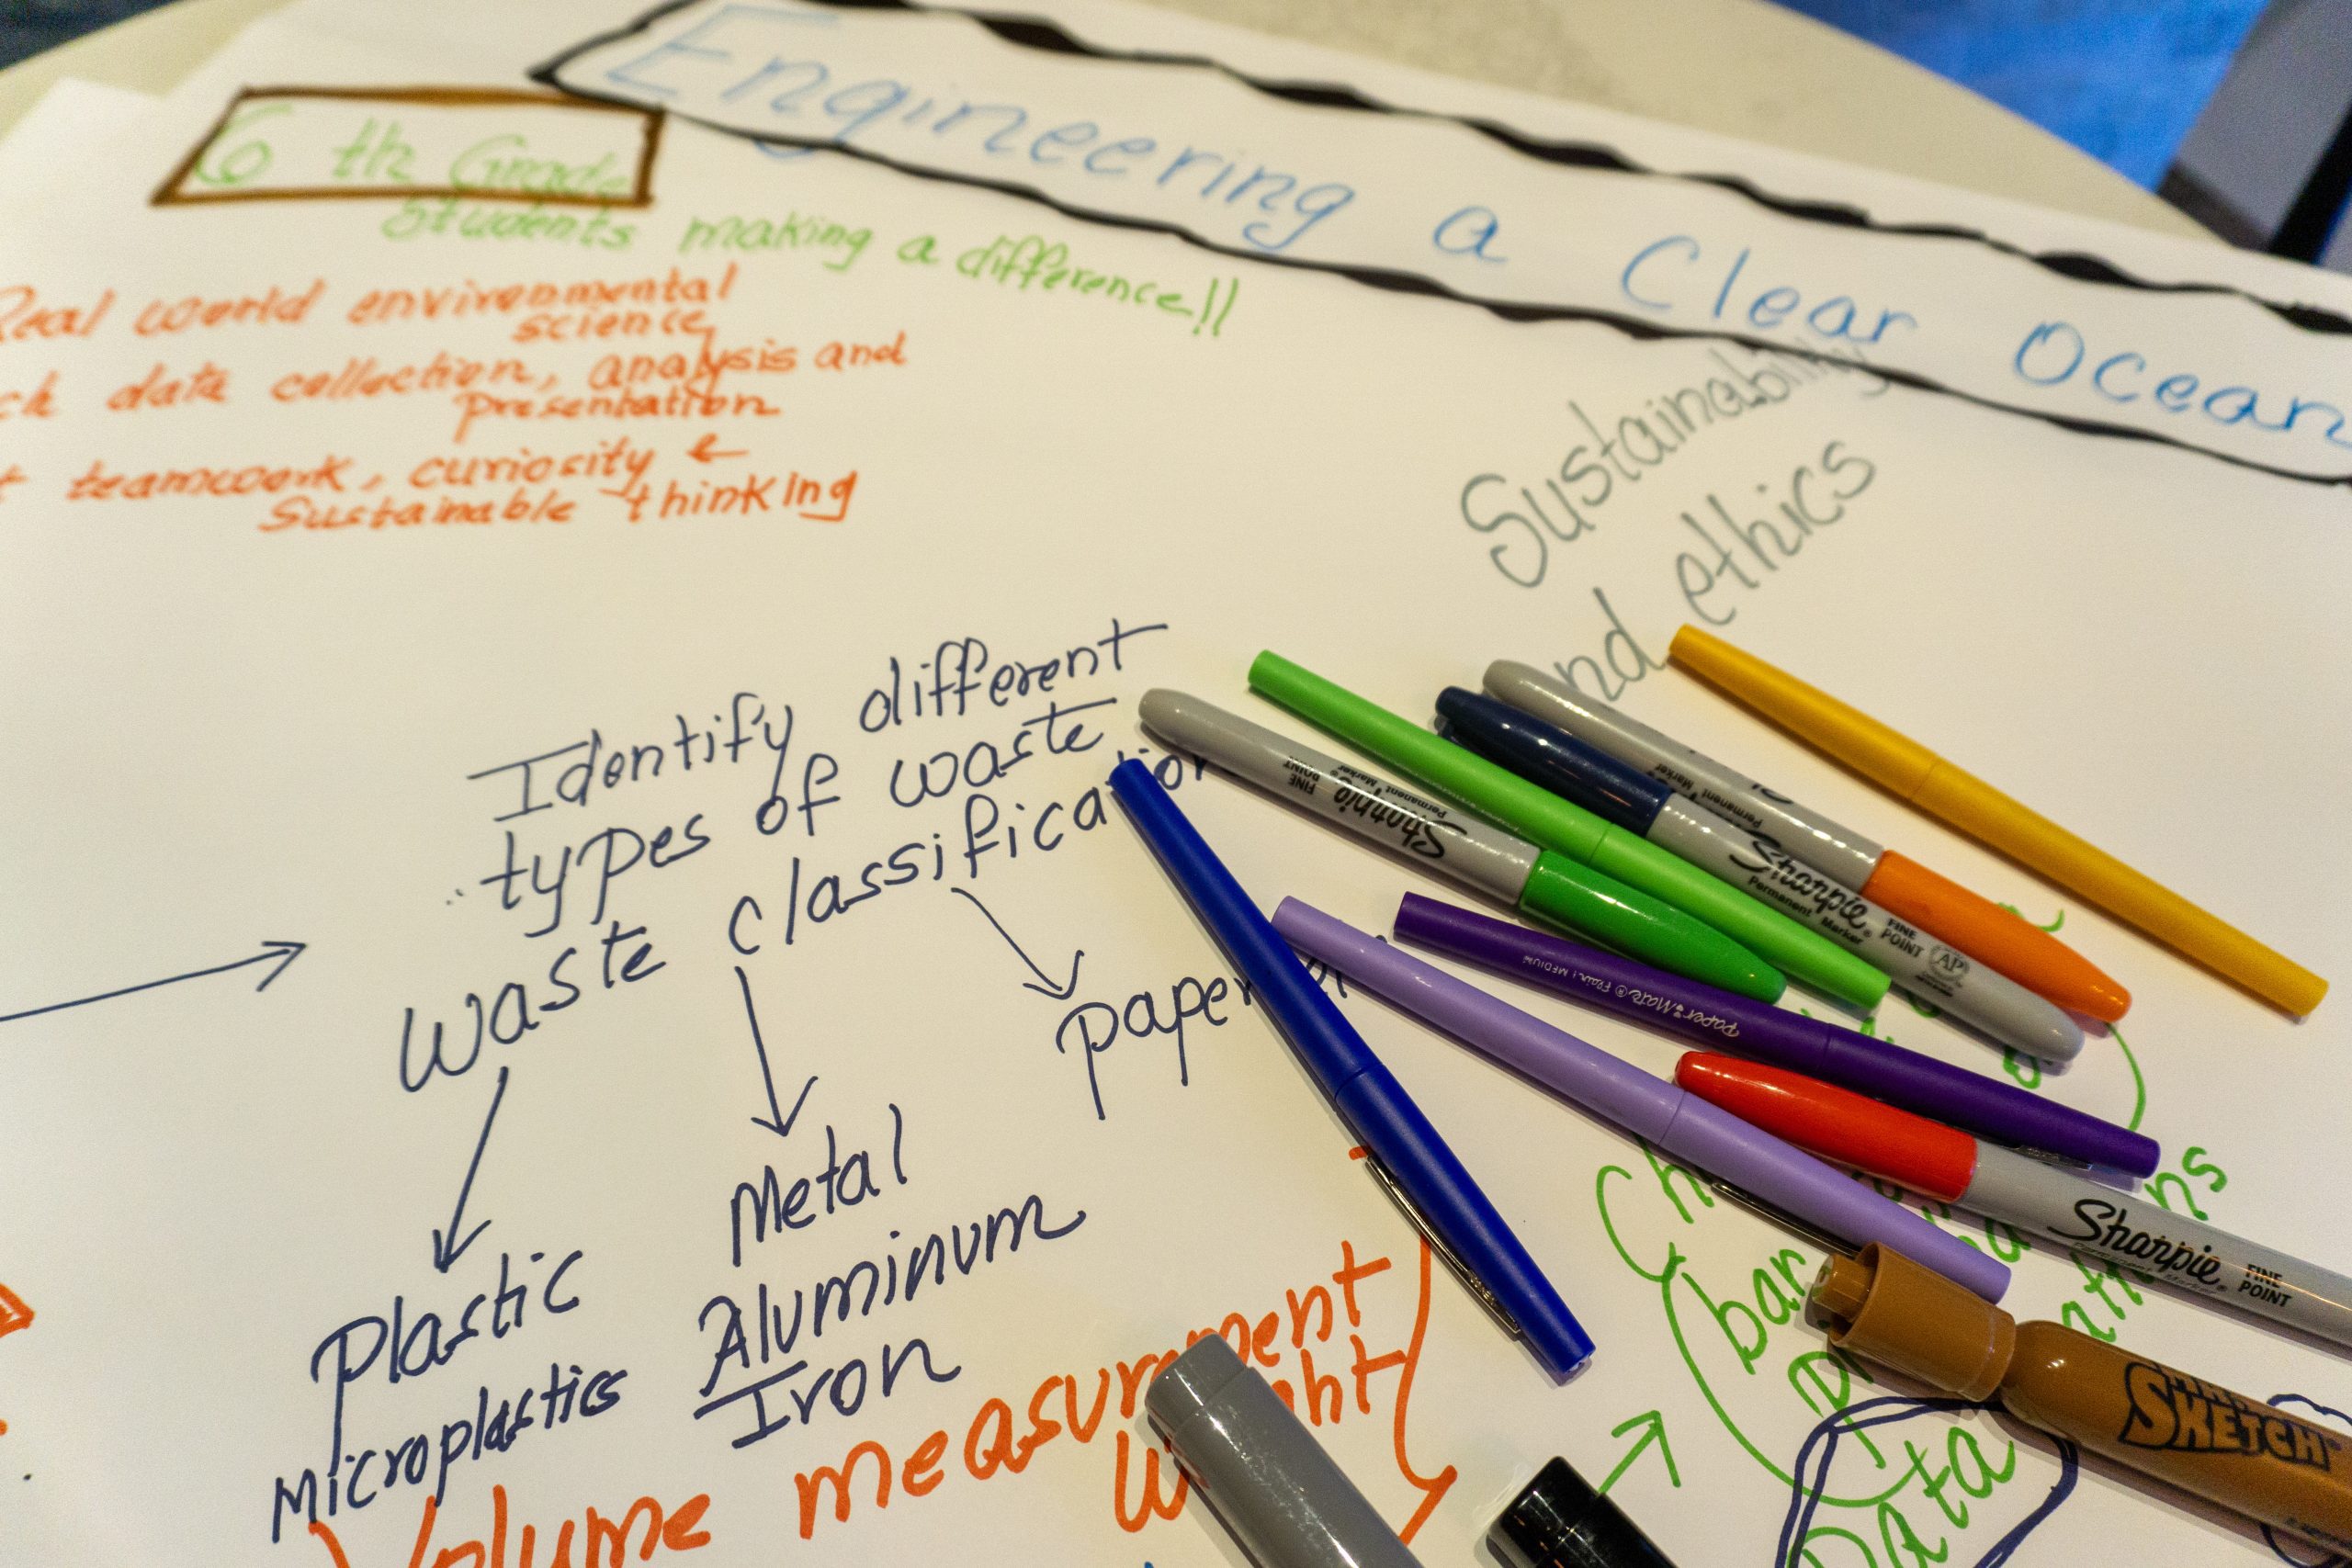 Engineering a Clear Ocean
6th Grade
Students making a difference!!
Real world environmental
science
data collection, analysis and
presentation
teamwork, curiosity ←
Sustainable thinking
Sustainability
and ethics
Identify different
types of waste
waste classification
Paper
Plastic
Microplastics
Metal
Aluminum
Iron
Volume measurement
Weight
bar
Data
Sharpie
Permanent Marker
FINE POINT
Sharpie
Permanent Marker
FINE POINT
AP
Permanent Marker
Paper Mate® Flair. MEDIUM
Sharpie
FINE POINT
SKETCH